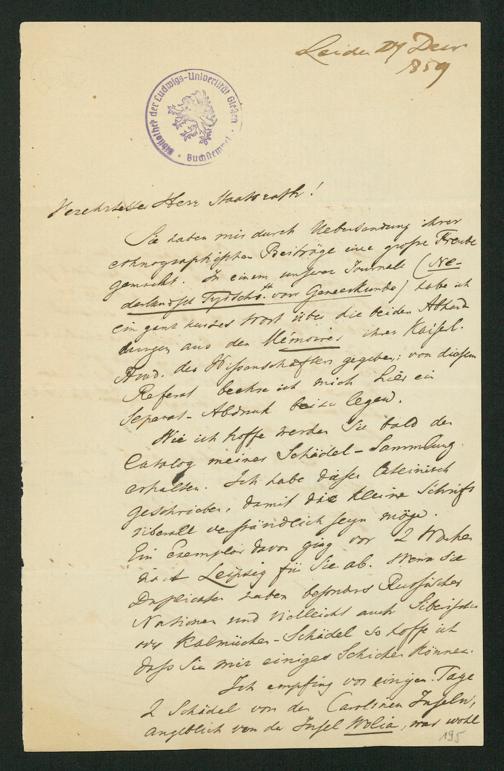 Leiden 29 Decr
1859
Bibliothek der Ludwigs-Universität Gießen
Buchstempel
Verehrtester Herr Staatsrath!
Sie haben mir durch Uebersendung ihrer
ethnographischen Beiträge eine große Freude
gemacht. In einem unserer Journale (Ne-
derlandsch Tydschr. voor Geneeskunde) habe ich
ein ganz kurzes Wort über die beiden Abhand
lungen aus den Mémoires ihrer Kaiserl.
Akad. des Wissenschaften gegeben; von diesem
Referat beehre ich mich hier ein
Separat-Abdruck beizulegen.
Wie ich hoffe werden Sie bald den
Catalog meiner Schädel-Sammlung
erhalten. Ich habe dieses Lateinisch
geschrieben, damit die kleine Schrift
überall verständlich seyn möge.
Ein Exemplar davon ging vor 2 Wochen
nach Leipzig für Sie ab. Wenn Sie
Duplicate haben besonders Russischer
Nationen und vielleicht auch Sibirischer
Kalmücken-Schädel so hoffe ich
daß Sie mir einiges schicken können.
Ich empfing vor einigen Tage
2 Schädel von den Carolinen Inseln,
angeblich von der Insel Wolia, was wohl
195